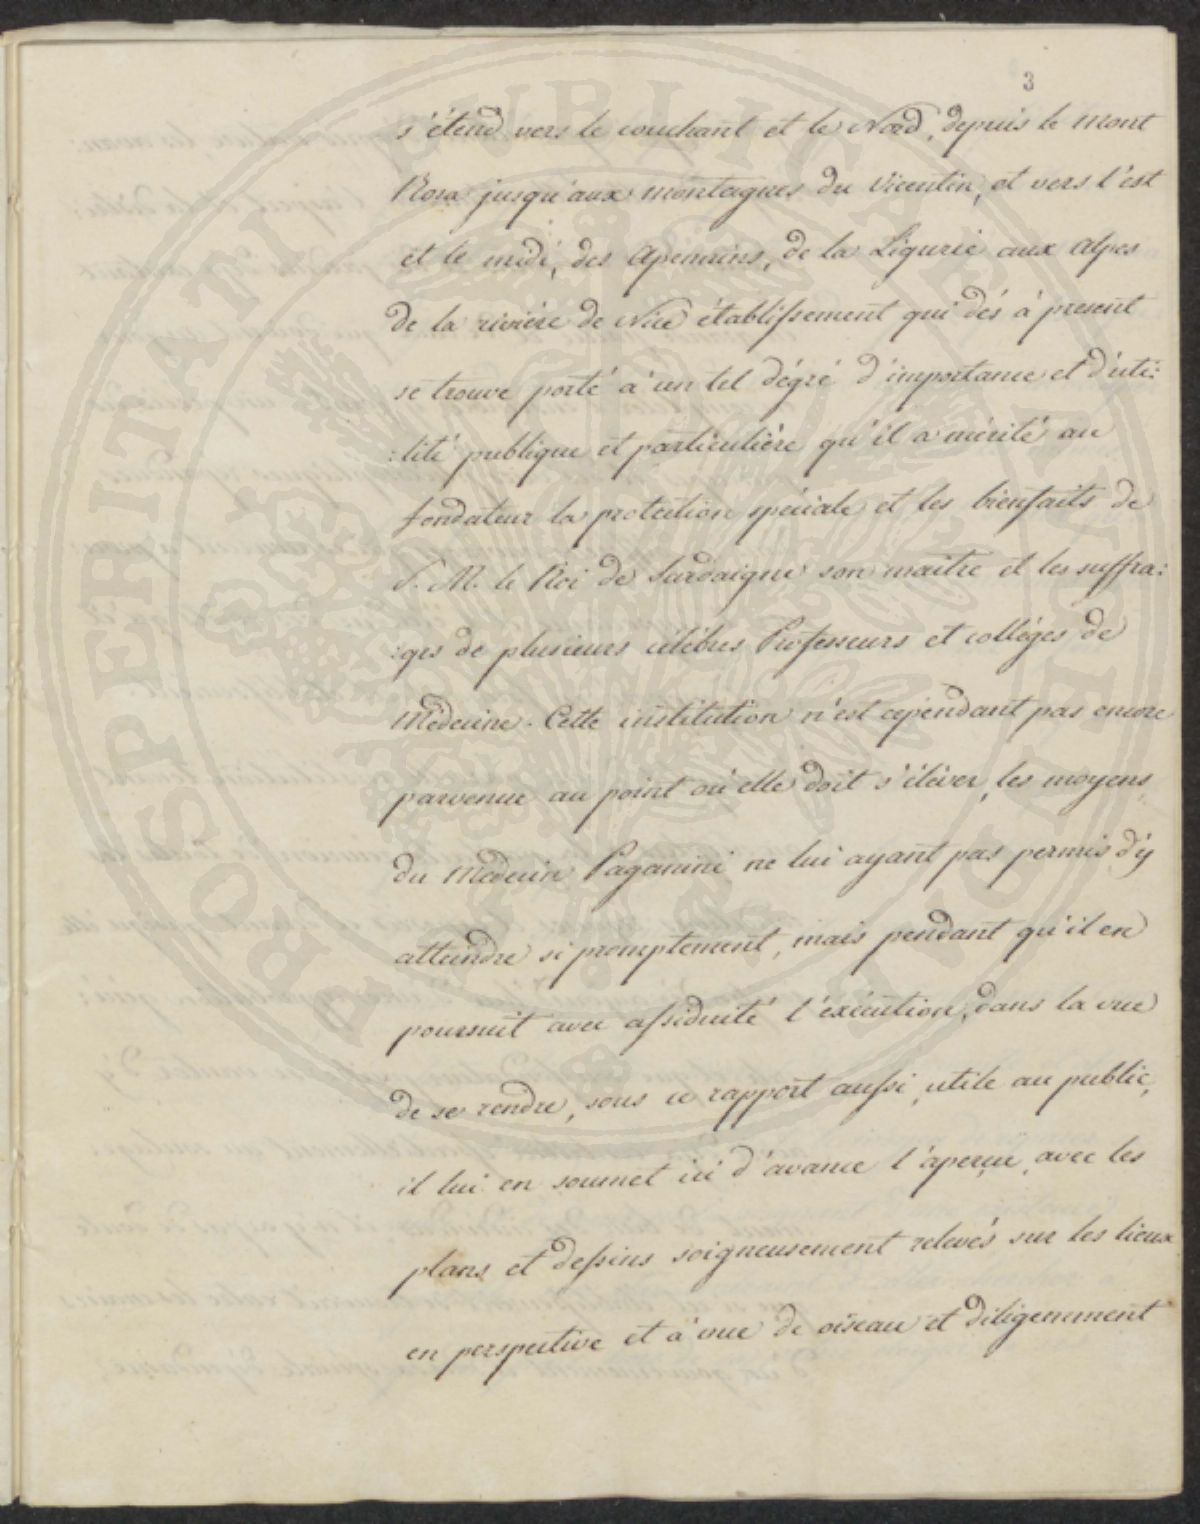 3
s'étend vers le couchant et le Nord, depuis le Mont
Rosa jusqu'aux montagnes du Vicentin, et vers l'est
et le midi, des Apennins, de la Ligurie aux alpes
de la rivière de Nice établissement qui dés à présent
se trouve porté à un tel dégré d'importance et d'uti:
:lité publique et particulière qu'il a mérité au
fondateur la protection spéciale et les bienfaits de
S. M. le Roi de Sardaigne son maître et les suffra:
:ges de plusieurs célébres Professeurs et colléges de
Médecine. Cette institution n'est cependant pas encore
parvenue au point où elle doit s'éléver, les moyens
du Médecin Paganini ne lui ayant pas permis d'y
atteindre si promptement, mais pendant qu'il en
poursuit avec assiduité l'exécution, dans la vue
de se rendre, sous ce rapport aussi, utile au public,
il lui en soumet ici d'avance l'aperçu, avec les
plans et dessins soigneusement relevés sur les lieux
en perspective et à vue de oiseau et diligemment
PROSPERITATI PUBLICAE